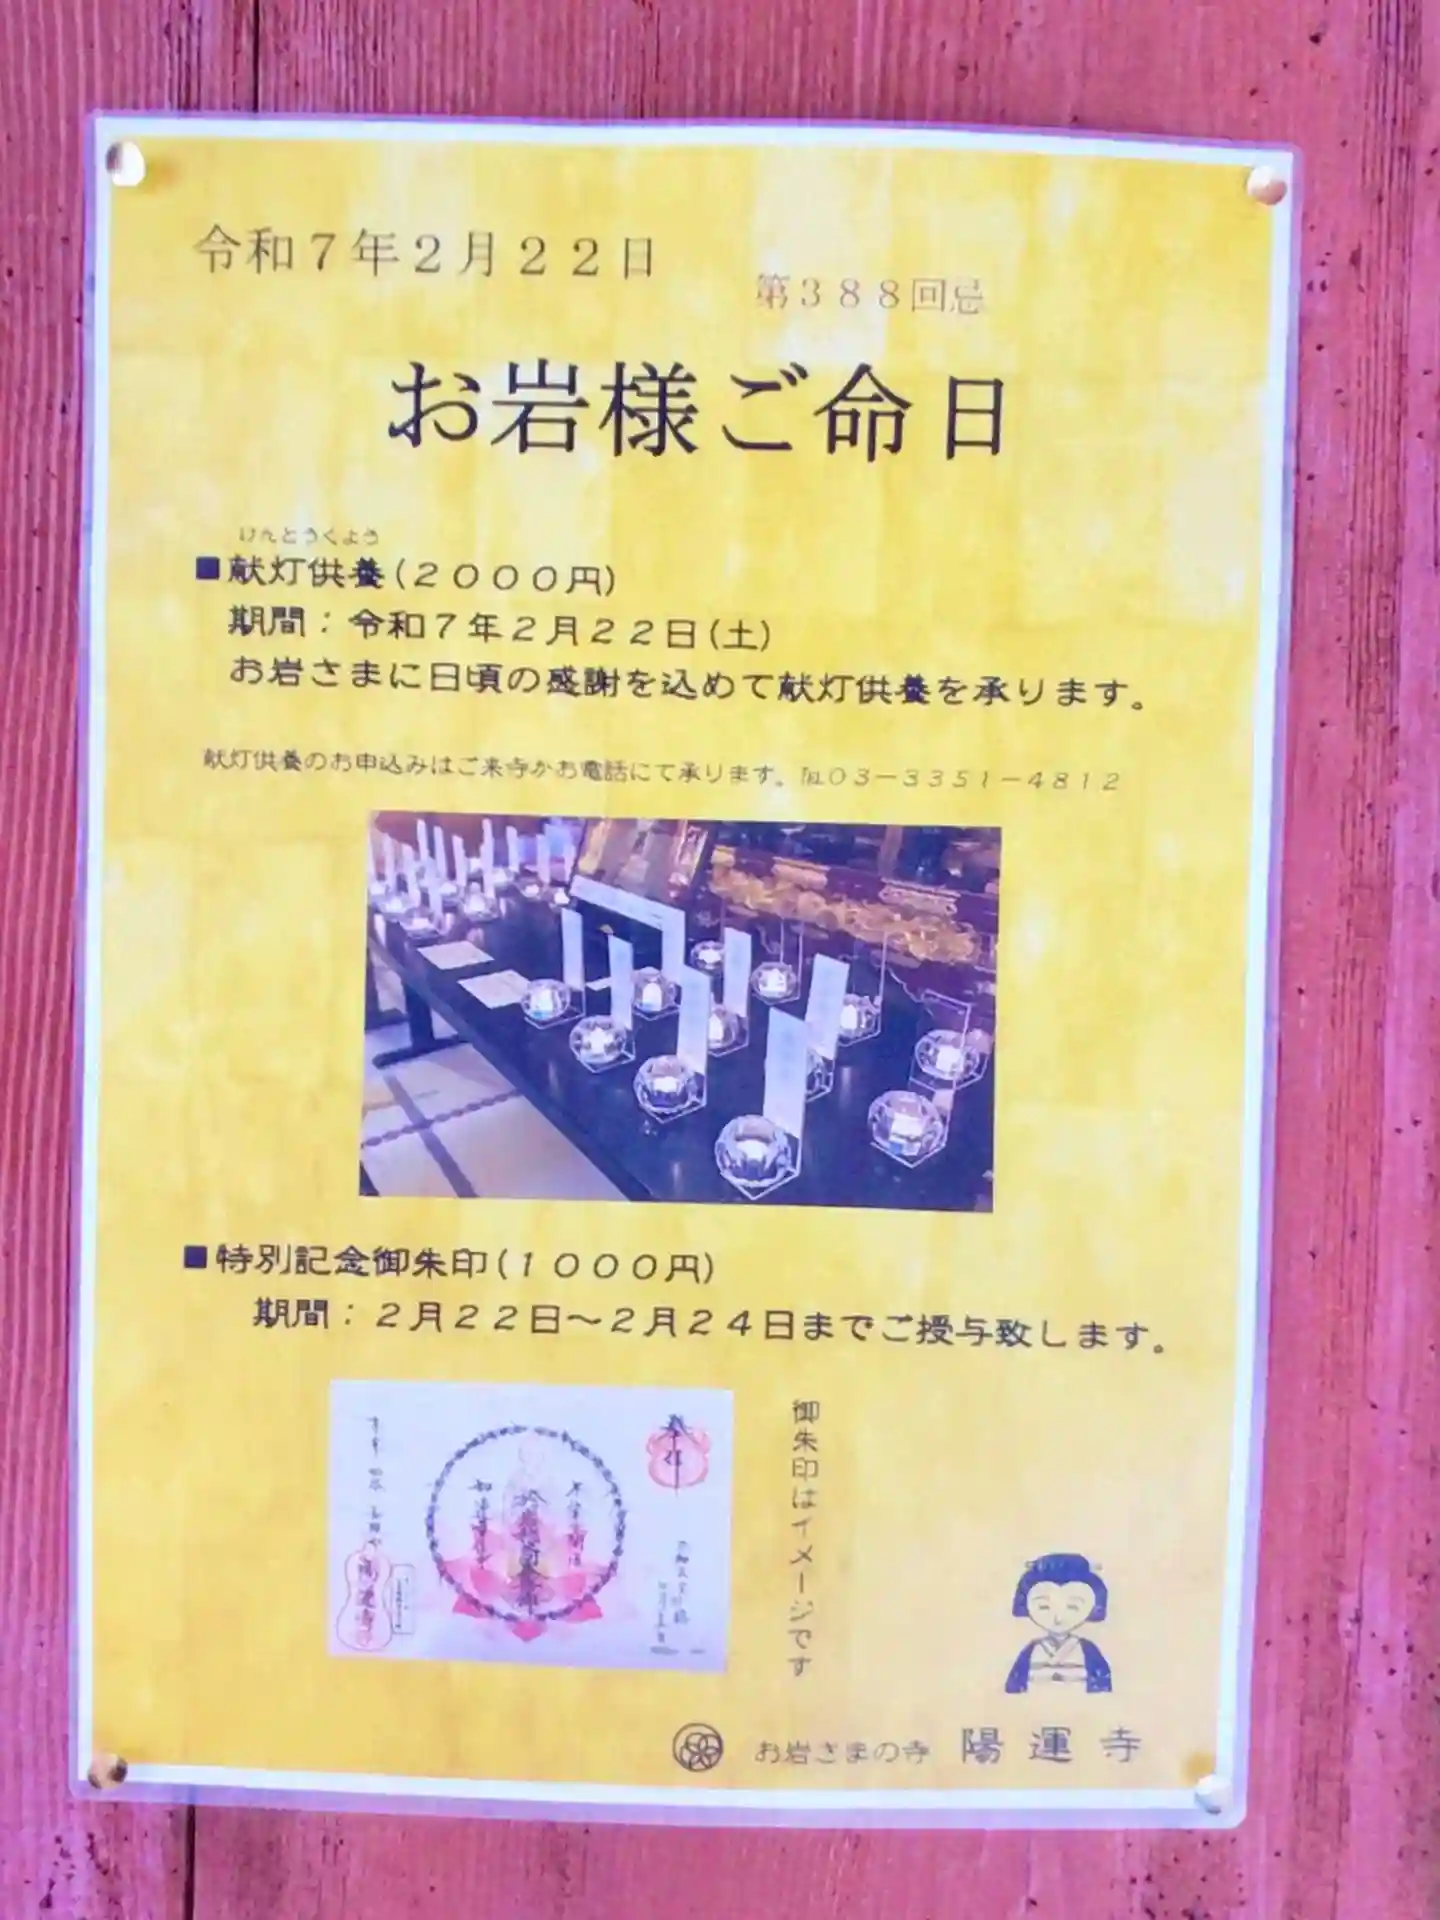 令和7年2月22日
第388回忌
お岩様ご命日
けんとうくよう
■献灯供養(2000円)
期間：令和7年2月22日(土)
お岩さまに日頃の感謝を込めて献灯供養を承ります。
献灯供養のお申込みはご来寺かお電話にて承ります。℡03－3351－4812
■特別記念御朱印(1000円)
期間：2月22日～2月24日までご授与致します。
奉拝
陽運寺
御朱印はイメージです
お岩さまの寺 陽運寺